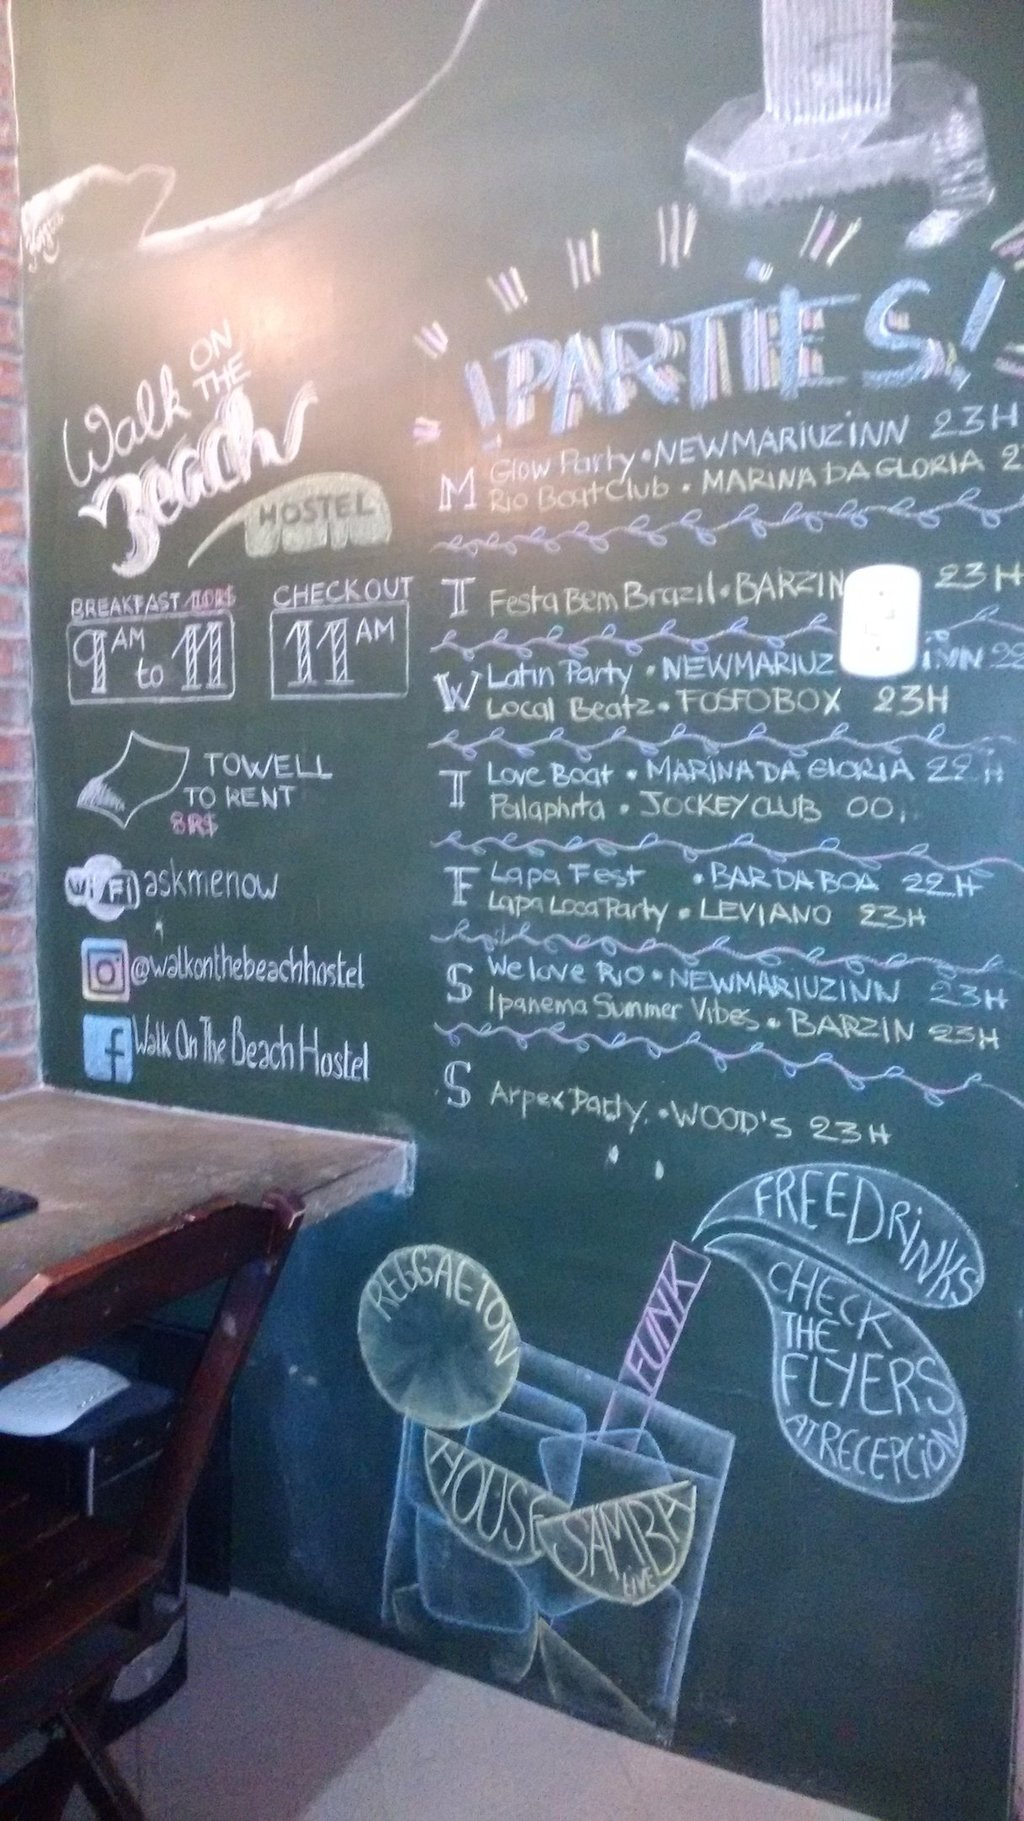 Walk ON
THE
Beach
HOSTEL
BREAKFAST
9AM to 11
CHECK OUT
11AM
TOWELL
TO RENT
8R$
WiFi askmenow
@walkonthebeachhostel
f Walk On The Beach Hostel
¡PARTIES!
M Glow Party • NEWMARIUZINN 23H
Rio Boat Club • MARINA DA GLORIA
T Festa Bem Brazil • BARZIN 23H
W Latin Party • NEWMARIUZ iNN 22
Local Beatz • FOSFOBOX 23H
T Love Boat • MARINA DA GLORIA 22H
Palaphita • JOCKEY CLUB 00
F Lapa Fest • BAR DA BOA 22H
Lapa Loca Party • LEVIANO 23H
S We love Rio • NEWMARIUZINN 23H
Ipanema Summer Vibes • BARZIN 23H
S Arpex Party • WOOD'S 23H
FREE DRiNKS
CHECK
THE
FLYERS
AT RECEPCiÓN
REGGAETON
FUNK
HOUSE
SAMBA
LiVE